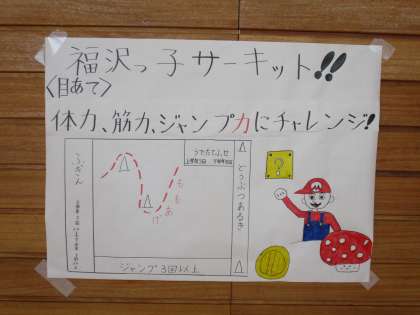 福沢っ子サーキット!!
〈目あて〉
体力、筋力、ジャンプ力にチャレンジ!
ふっきん
うでたてふせ
どうぶつあるき
ももあげ
ジャンプ3回以上
?